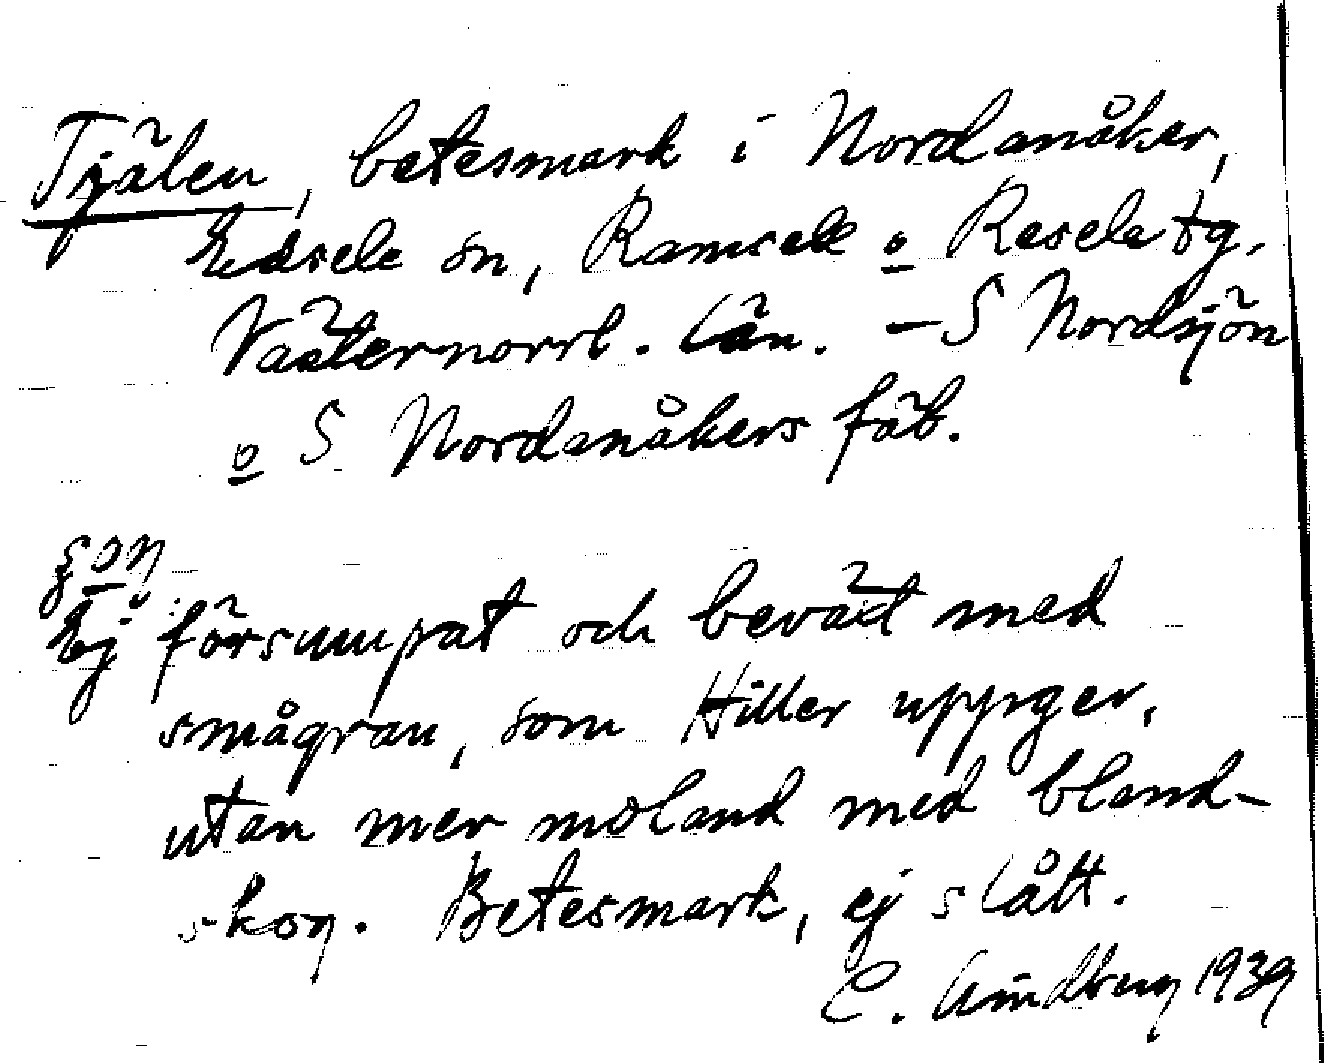 Tjälen, betesmark i Nordanåker,
Edsele sn, Ramsele o Resele tg,
Västernorrl. län. – S Nordsjön
o S Nordanåkers fäb.
Ej försumpat och beväxt med
smågran, som Hiller uppger,
utan mer moland med bland-
skog. Betesmark, ej slått.
C. Lindberg 1939